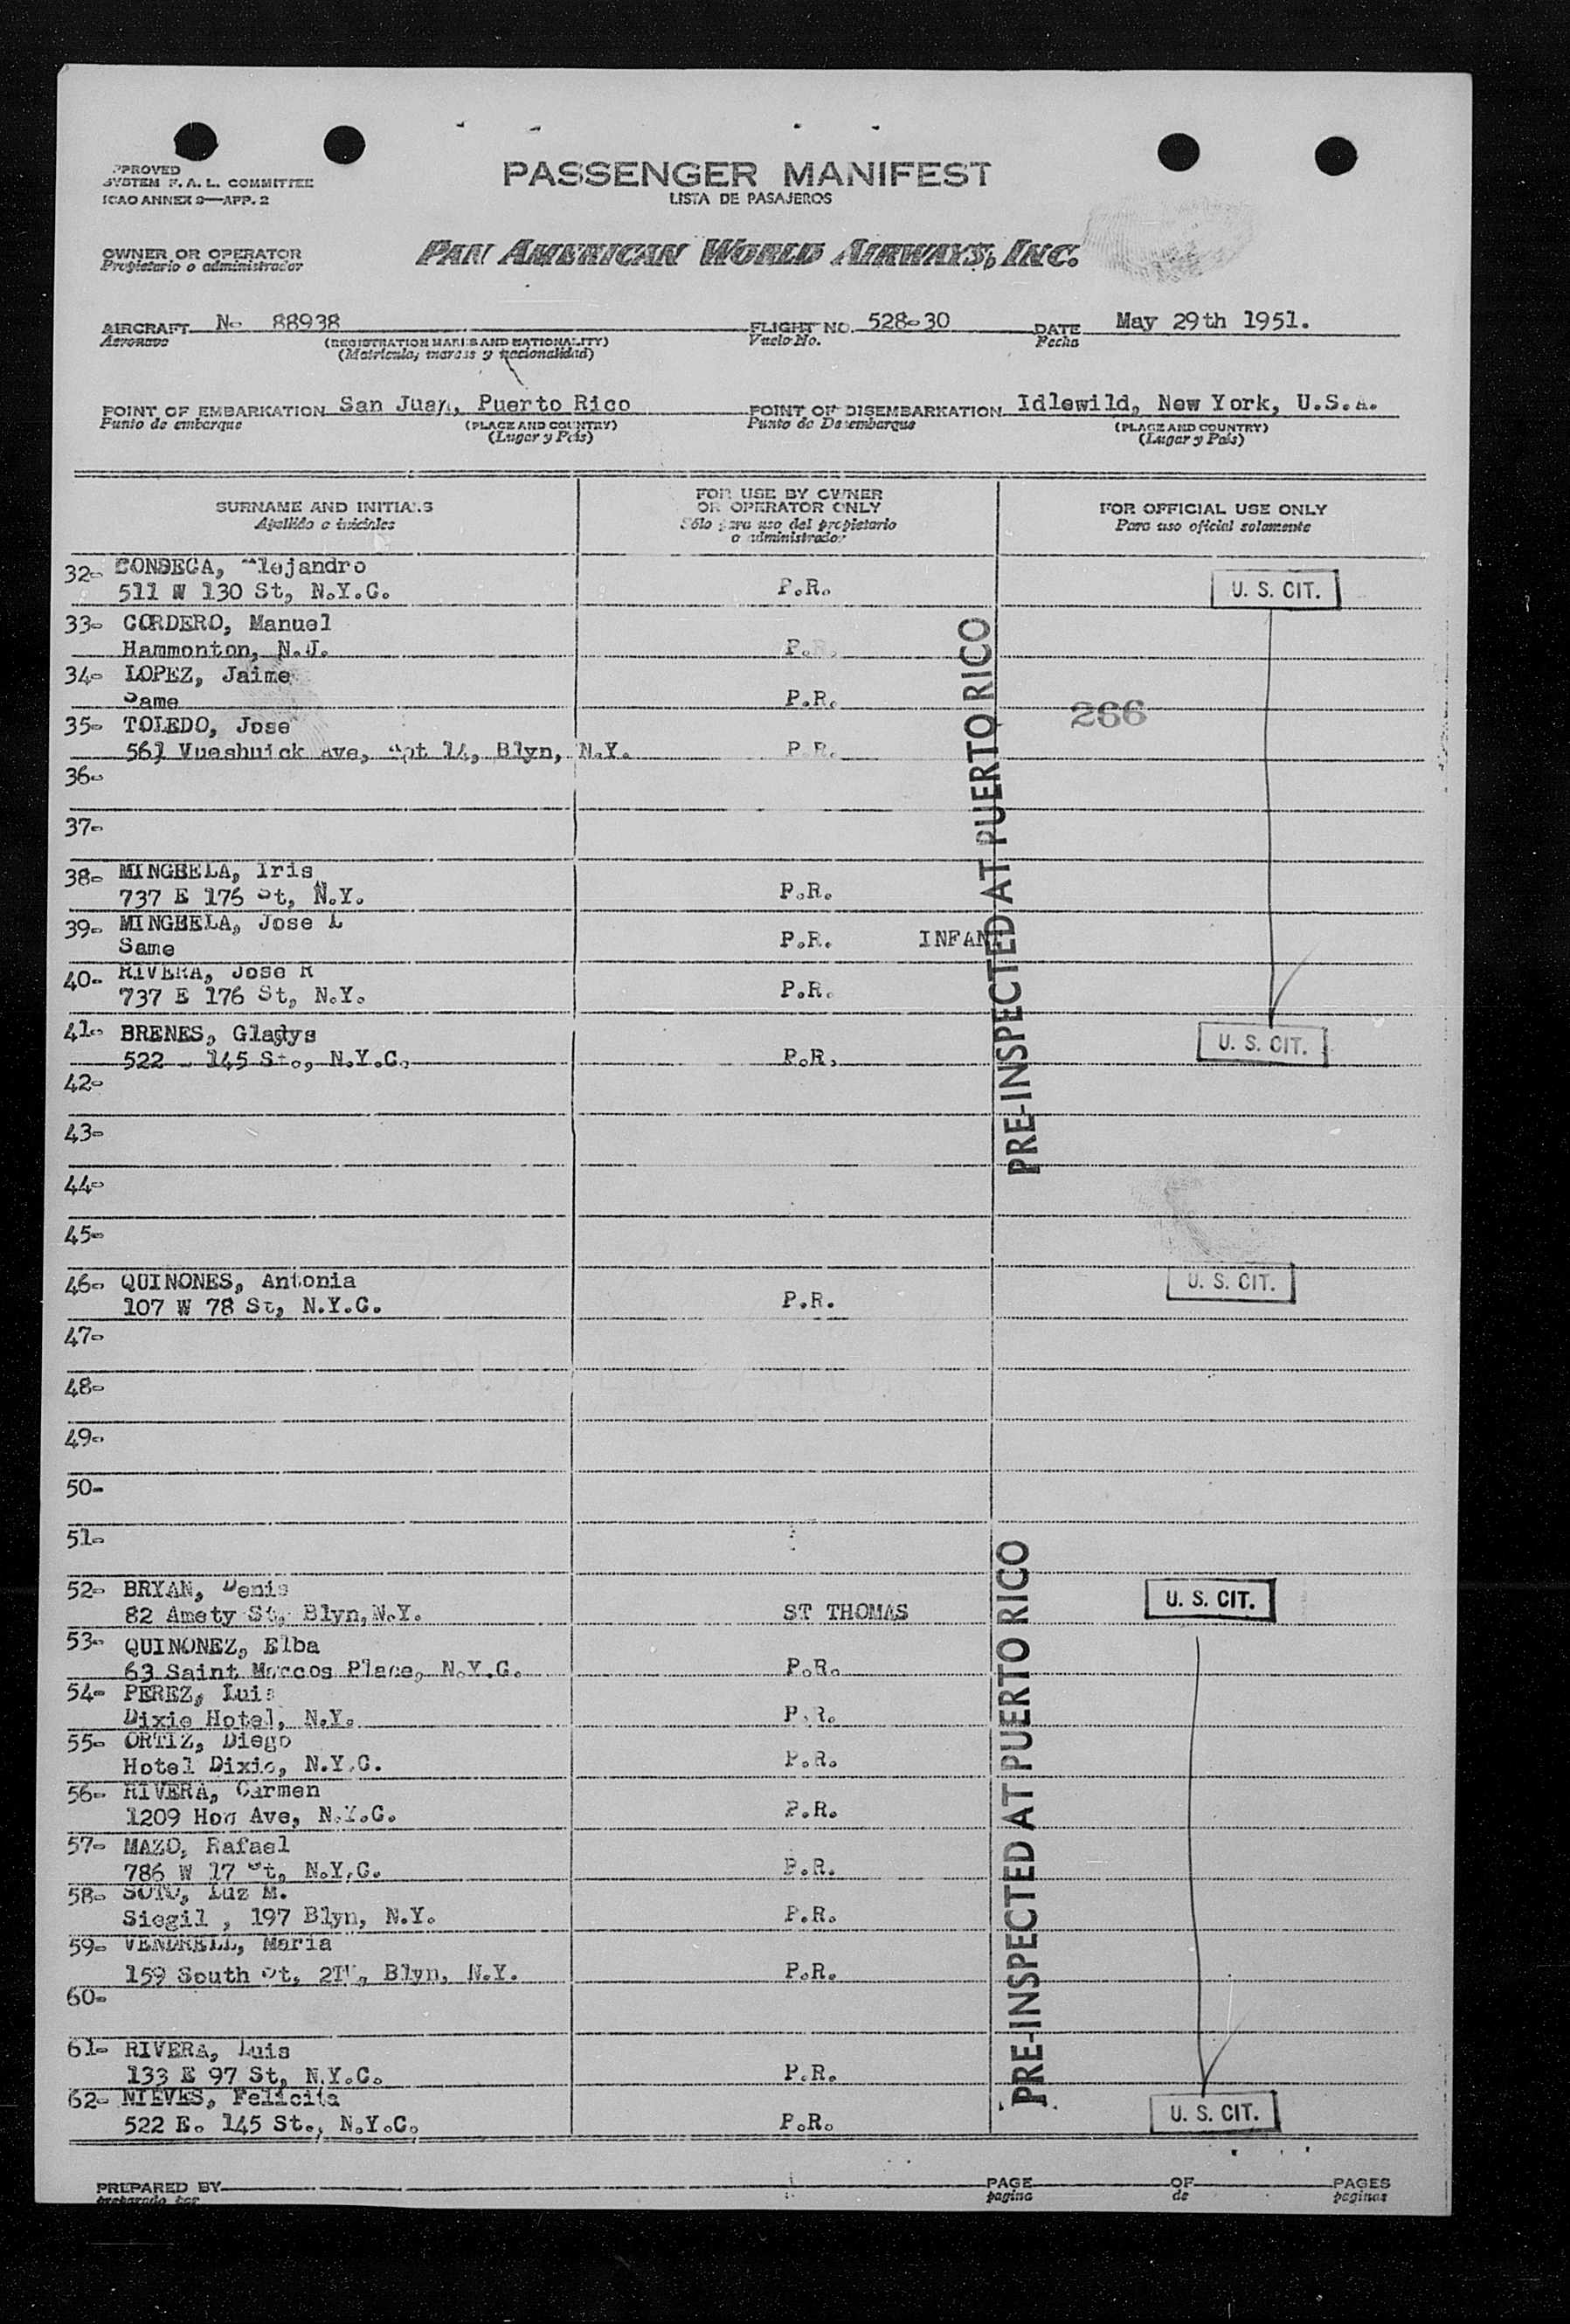 APPROVED
SYSTEM F. A. L. COMMITTEE
ICAO ANNEX 9—APP. 2
PASSENGER MANIFEST
LISTA DE PASAJEROS
OWNER OR OPERATOR
Propietario o administrador
PAN AMERICAN WORLD AIRWAYS, INC.
AIRCRAFT N- 88938 FLIGHT NO. 528-30 DATE May 29th 1951.
Aeronave (REGISTRATION MARKS AND NATIONALITY) Vuelo No. Fecha
(Matricula, marcas y nacionalidad)
POINT OF EMBARKATION San Juan, Puerto Rico POINT OF DISEMBARKATION Idlewild, New York, U.S.A.
Punto de embarque (PLACE AND COUNTRY) Punto de Desembarque (PLACE AND COUNTRY)
(Lugar y País) (Lugar y País)
SURNAME AND INITIALS
Apellido e iniciales
FOR USE BY OWNER
OR OPERATOR ONLY
Sólo para uso del propietario
o administrador
FOR OFFICIAL USE ONLY
Para uso oficial solamente
32- Alejandro
511 W 130 St, N.Y.C. P.R. U. S. CIT.
33- CORDERO, Manuel
Hammonton, N.J. P.R.
34- LOPEZ, Jaime
Same P.R. 266
35- TOLEDO, Jose
561 Ave, Apt 14, Blyn, N.Y. P.R.
36-
37-
38- MINGHELA, Iris
737 E 176 St, N.Y. P.R.
39- MINGHELA, Jose L
Same P.R. INFANT
40- RIVERA, Jose R
737 E 176 St, N.Y. P.R.
41- BRENES, Gladys
522 145 St., N.Y.C. P.R. U. S. CIT.
PRE-INSPECTED AT PUERTO RICO
42-
43-
44-
45-
46- QUINONES, Antonia U. S. CIT.
107 W 78 St, N.Y.C. P.R.
47-
48-
49-
50-
51-
52- BRYAN, Denis U. S. CIT.
82 Amety St, Blyn, N.Y. ST THOMAS
53- QUINONEZ, Elba
63 Saint Marcos Place, N.Y.C. P.R.
54- PEREZ, Luis
Dixie Hotel, N.Y. P.R.
55- ORTIZ, Diego
Hotel Dixie, N.Y.C. P.R.
56- RIVERA, Carmen
1209 Hoe Ave, N.Y.C. P.R.
57- MAZO, Rafael
786 W 17 St, N.Y.C. P.R.
58- SOTO, Luz M.
Siegil , 197 Blyn, N.Y. P.R.
59- VENDRELL, Maria
159 South St, Blyn, N.Y. P.R.
60-
61- RIVERA, Luis
133 E 97 St, N.Y.C. P.R.
62- NIEVES, Felicita
522 E. 145 St., N.Y.C. P.R. U. S. CIT.
PRE-INSPECTED AT PUERTO RICO
PREPARED BY PAGE OF PAGES
preparado por pagina de paginas